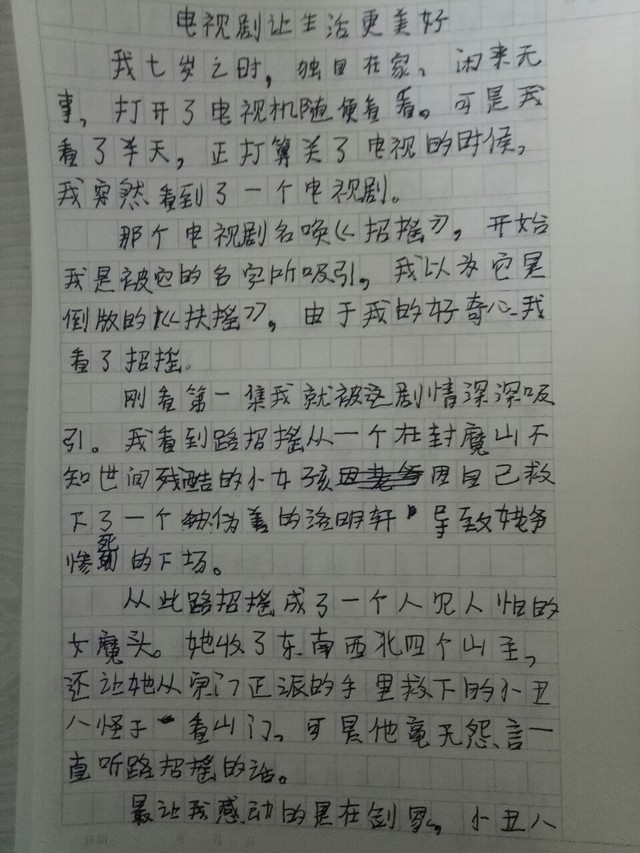 电视剧让生活更美好
我七岁之时，独自在家、闲来无
事，打开了电视机随便看看。可是我
看了半天，正打算关了电视的时候，
我突然看到了一个电视剧。
那个电视剧名唤《招摇》，开始
我是被它的名字所吸引，我以为它是
倒版的《扶摇》，由于我的好奇心我
看了招摇。
刚看第一集我就被这剧情深深吸
引。我看到路招摇从一个在封魔山不
知世间残酷的小女孩因自己救
下了一个伪善的洛明轩，导致姥爷
惨死的下场。
从此路招摇成了一个人见人怕的
女魔头。她收了东南西北四个山主，
还让她从门正派的手里救下的小丑
八怪于看山门，可是他毫无怨言一
直听路招摇的话。
最让我感动的是在剑冢，小丑八